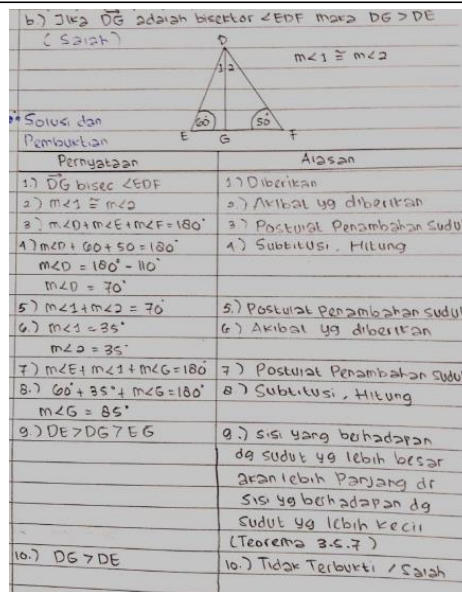 b.) Jika DG⃗ adalah bisektor <EDF maka DG > DE
( Salah )
D
m<1 ≅ m<2
1 2
60° 50°
E G F
Solusi dan
Pembuktian
Pernyataan Alasan
1.) DG⃗ bisec <EDF 1.) Diberikan
2.) m<1 ≅ m<2 2.) Akibat yg diberikan
3.) m<D + m<E + m<F = 180° 3.) Postulat Penambahan Sudu
4.) m<D + 60 + 50 = 180° 4.) Subtitusi, Hitung
m<D = 180° - 110°
m<D = 70°
5.) m<1 + m<2 = 70° 5.) Postulat Penambahan sudut
6.) m<1 = 35° 6.) Akibat yg diberikan
m<2 = 35°
7.) m<E + m<1 + m<G = 180° 7.) Postulat Penambahan Sudu
8.) 60° + 35° + m<G = 180° 8.) Subtitusi, Hitung
m<G = 85°
9.) DE > DG > EG 9.) sisi yang berhadapan
dg sudut yg lebih besar
akan lebih Panjang dr
sisi yg berhadapan dg
sudut yg lebih kecil
(Teorema 3.5.7)
10.) DG > DE 10.) Tidak Terbukti / Salah